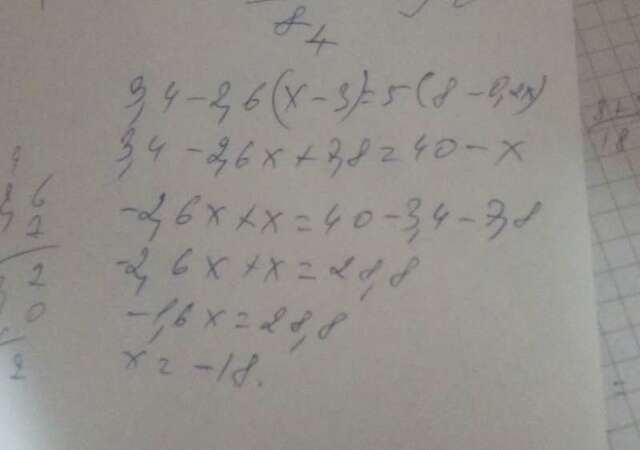 8 4
3,4 - 2,6(x - 3) = 5(8 - 0,2x)
3,4 - 2,6x + 7,8 = 40 - x
-2,6x + x = 40 - 3,4 - 7,8
-2,6x + x = 28,8
-1,6x = 28,8
x = -18.
6
2
2
0
2
18